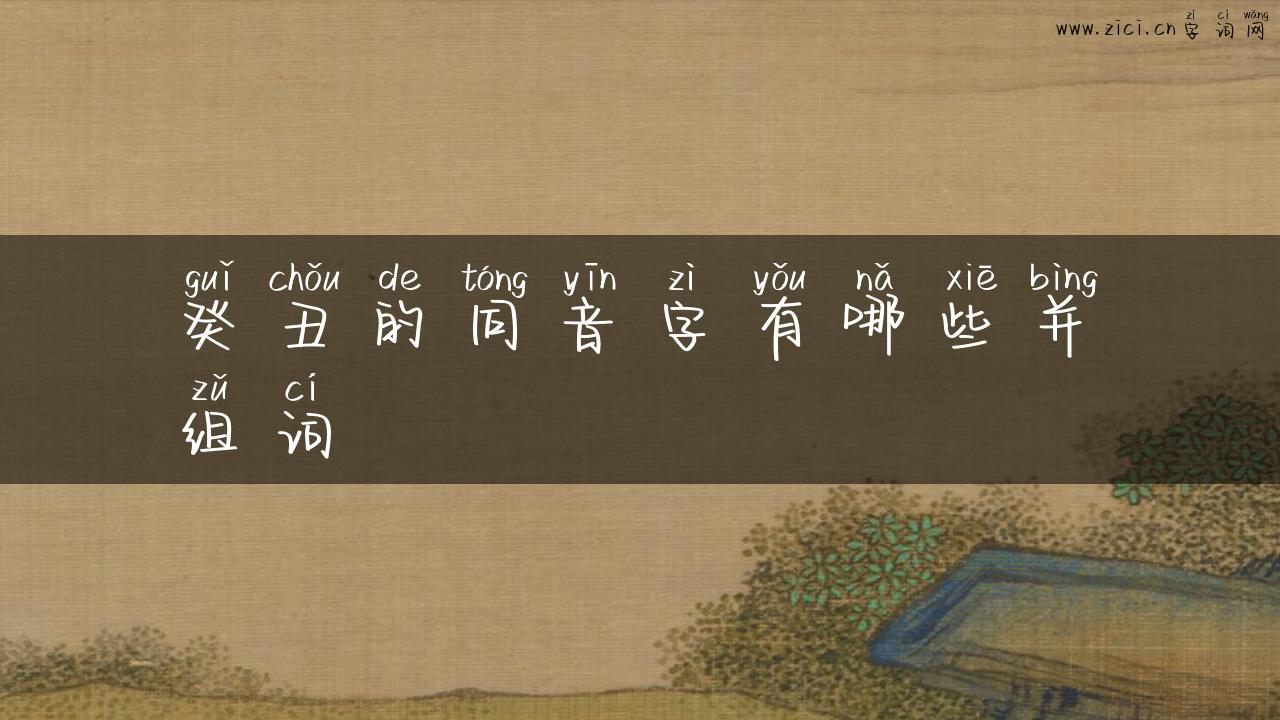 zì cí wǎng
www.zici.cn 字 词 网
guǐ chǒu de tóng yīn zì yǒu nǎ xiē bìng
癸 丑 的 同 音 字 有 哪 些 并
zǔ cí
组 词